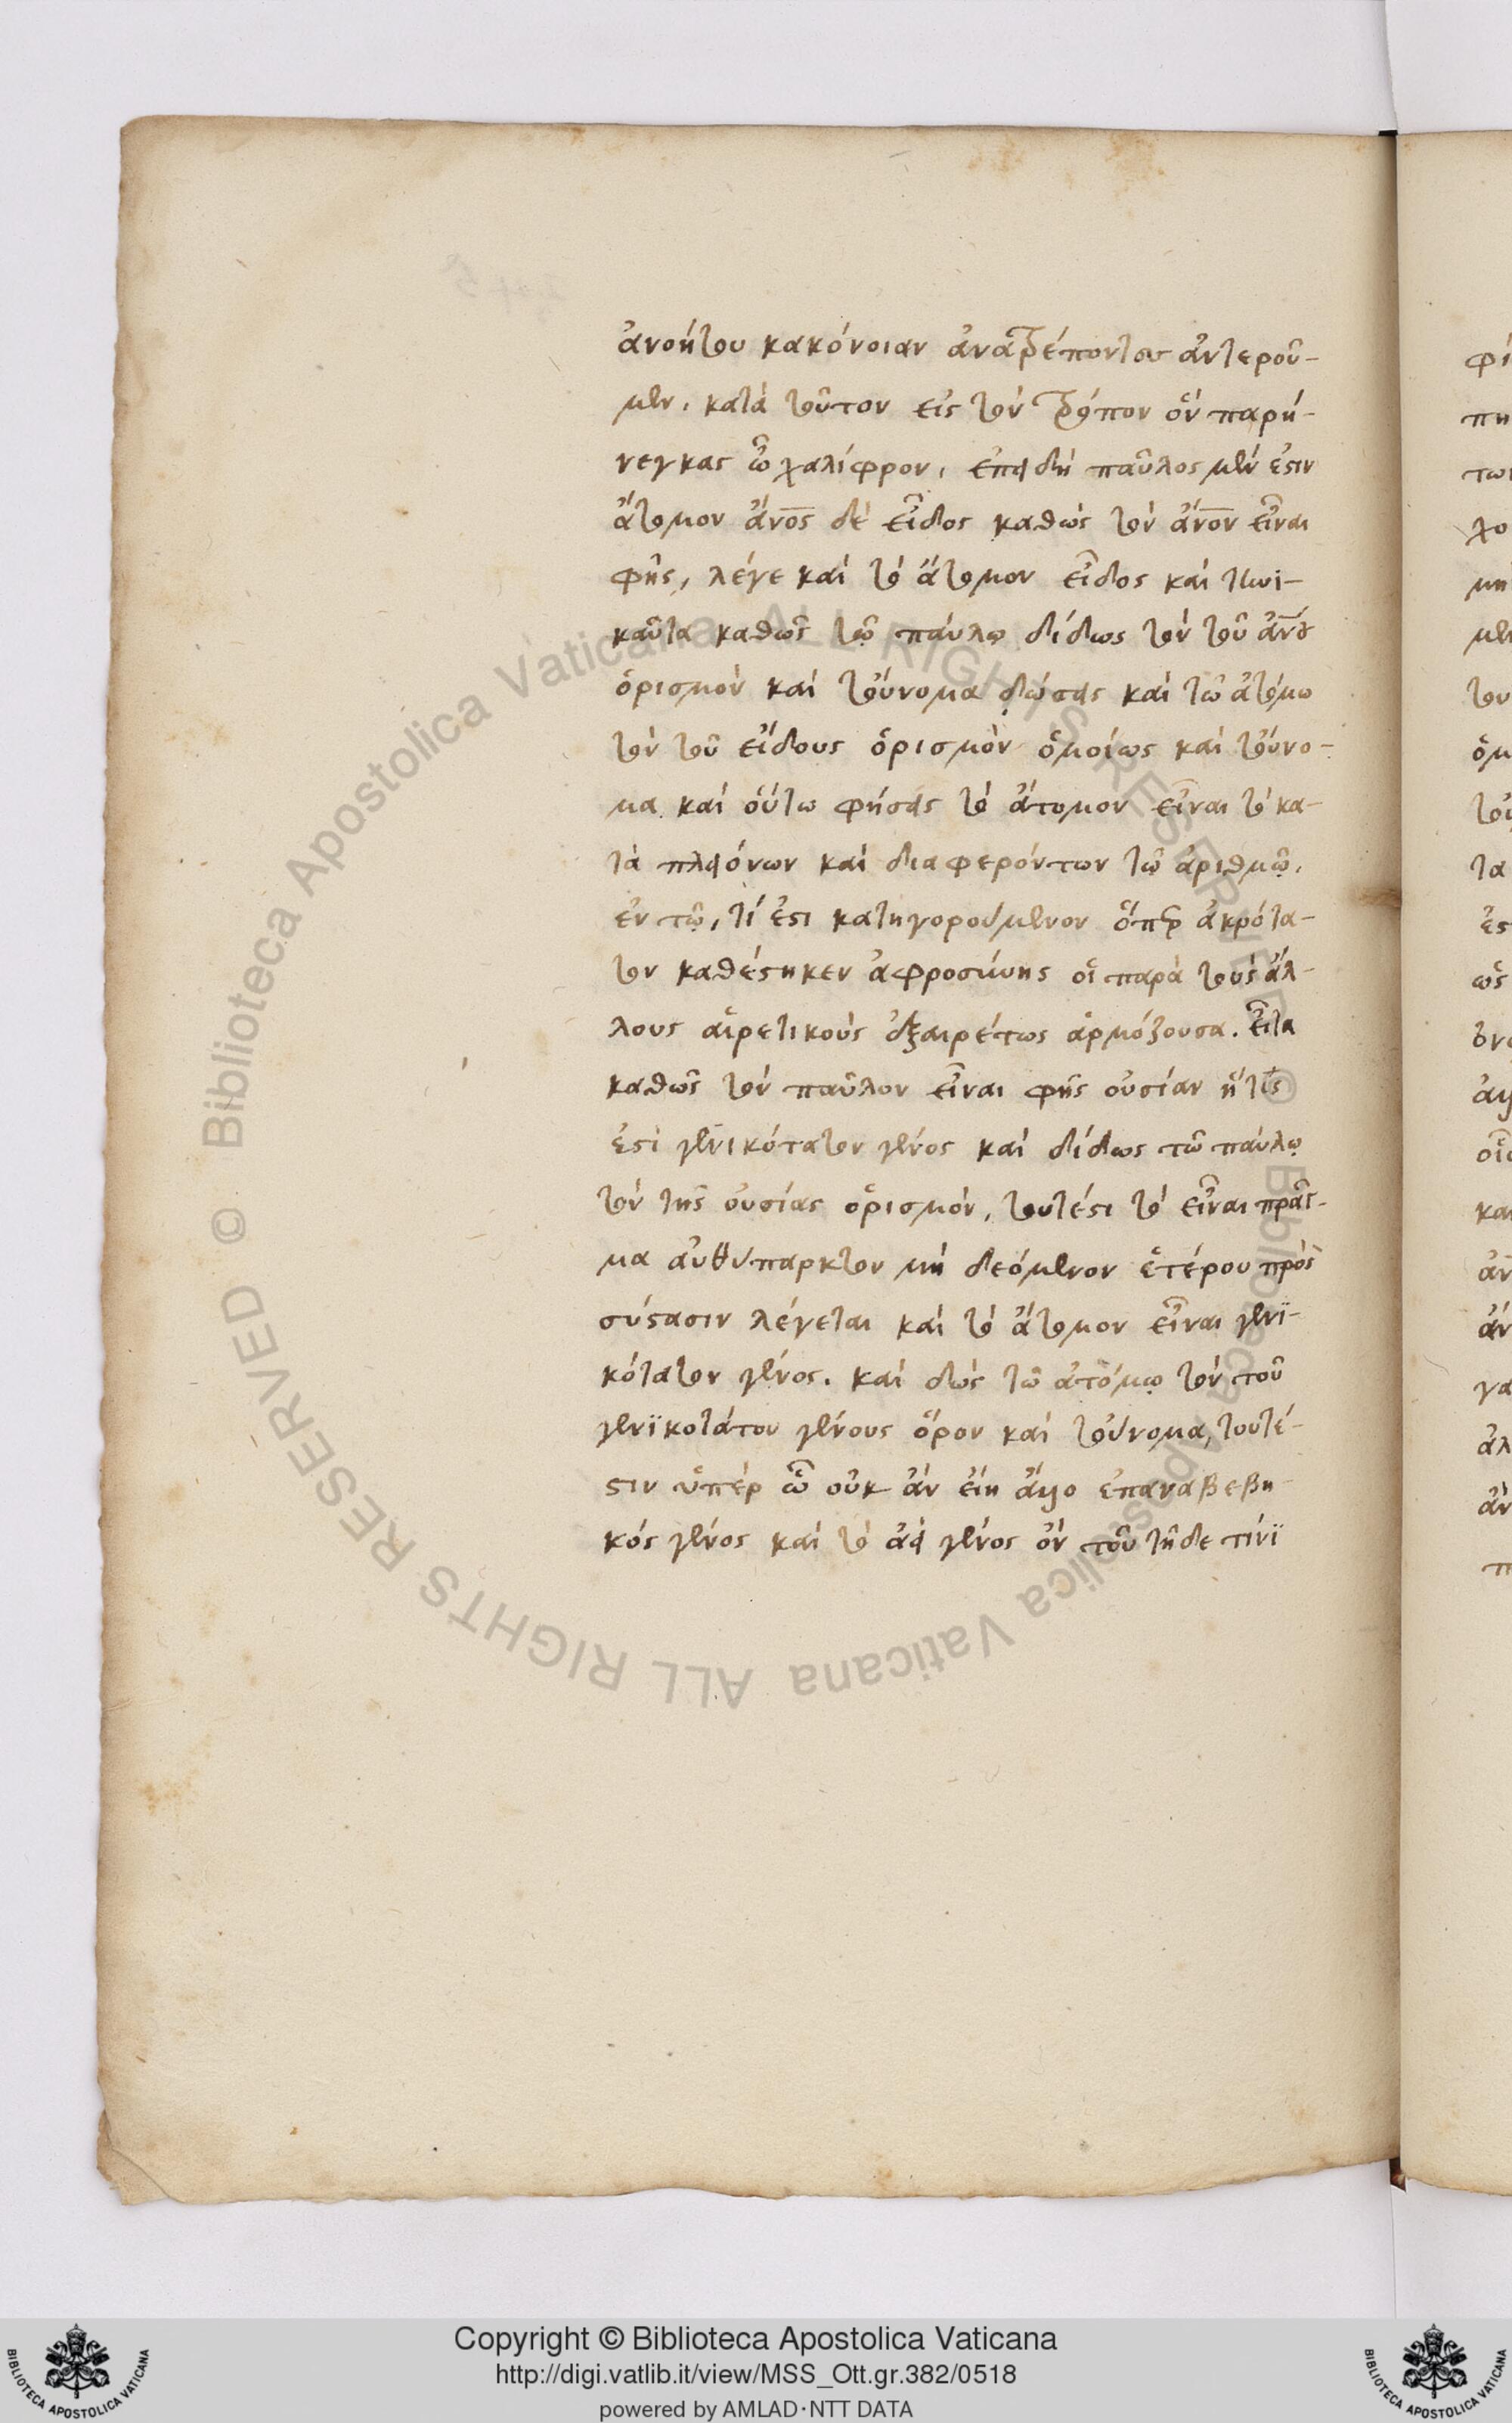 ἀνοήτου κακόνοιαν ἀνατρέποντες ἀντεροῦ-
μεν. κατὰ τοῦτον εἰς τὸν τρόπον ὃν παρή-
νεγκας ὦ χαλίφρον, ἐπειδὴ παῦλος μέν ἐστιν
ἄτομον ἄνος δὲ εἶδος καθὼς τὸν ἄνον εἶναι
φῆς, λέγε καὶ τὸ ἄτομον εἶδος καὶ τηνι-
καῦτα καθὼς τῷ παύλῳ δίδως τὸν τοῦ ἀνου
ὁρισμὸν καὶ τοὔνομα δώσεις καὶ τῶ ἀτόμω
τὸν τοῦ εἴδους ὁρισμὸν ὁμοίως καὶ τοὔνο-
μα καὶ οὕτω φήσεις τὸ ἄτομον εἶναι τὸ κα-
τὰ πλειόνων καὶ διαφερόντων τῷ ἀριθμῷ,
ἐν τῷ, τί ἐστι κατηγορούμενον ὅπερ ἀκρότα-
τον καθέστηκεν ἀφροσύνης οἷ παρὰ τοὺς ἄλ-
λους αἱρετικοὺς ἐξαιρέτως ἁρμόζουσα. εἶτα
καθὼς τὸν παῦλον εἶναι φῆς οὐσίαν ἥτις
ἐστὶ γενικότατον γένος καὶ δίδως τῶ παύλῳ
τὸν τῆς οὐσίας ὁρισμόν, τουτέστι τὸ εἶναι πρᾶγ-
μα αὐθύπαρκτον μὴ δεόμενον ἑτέρου πρὸς
σύστασιν λέγεται καὶ τὸ ἄτομον εἶναι γενϊ-
κότατον γένος. καὶ δὼς τῶ ἀτόμῳ τὸν τοῦ
γενϊκοτάτου γένους ὅρον καὶ τοὔνομα, τουτέ-
στιν ὑπὲρ ὧ οὐκ ἂν εἴη ἄλλο ἐπαναβεβη-
κός γένος καὶ τὸ ἀεὶ γένος ὂν τοῦ τῆδε τινϊ
Copyright © Biblioteca Apostolica Vaticana
http://digi.vatlib.it/view/MSS_Ott.gr.382/0518
powered by AMLAD·NTT DATA